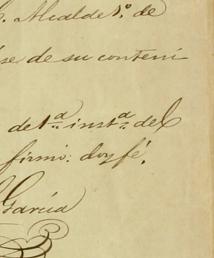 S. Alcalde 1.º de
se de su conteni
de 1.ª inst.ª del
firmó: doy fé.
García